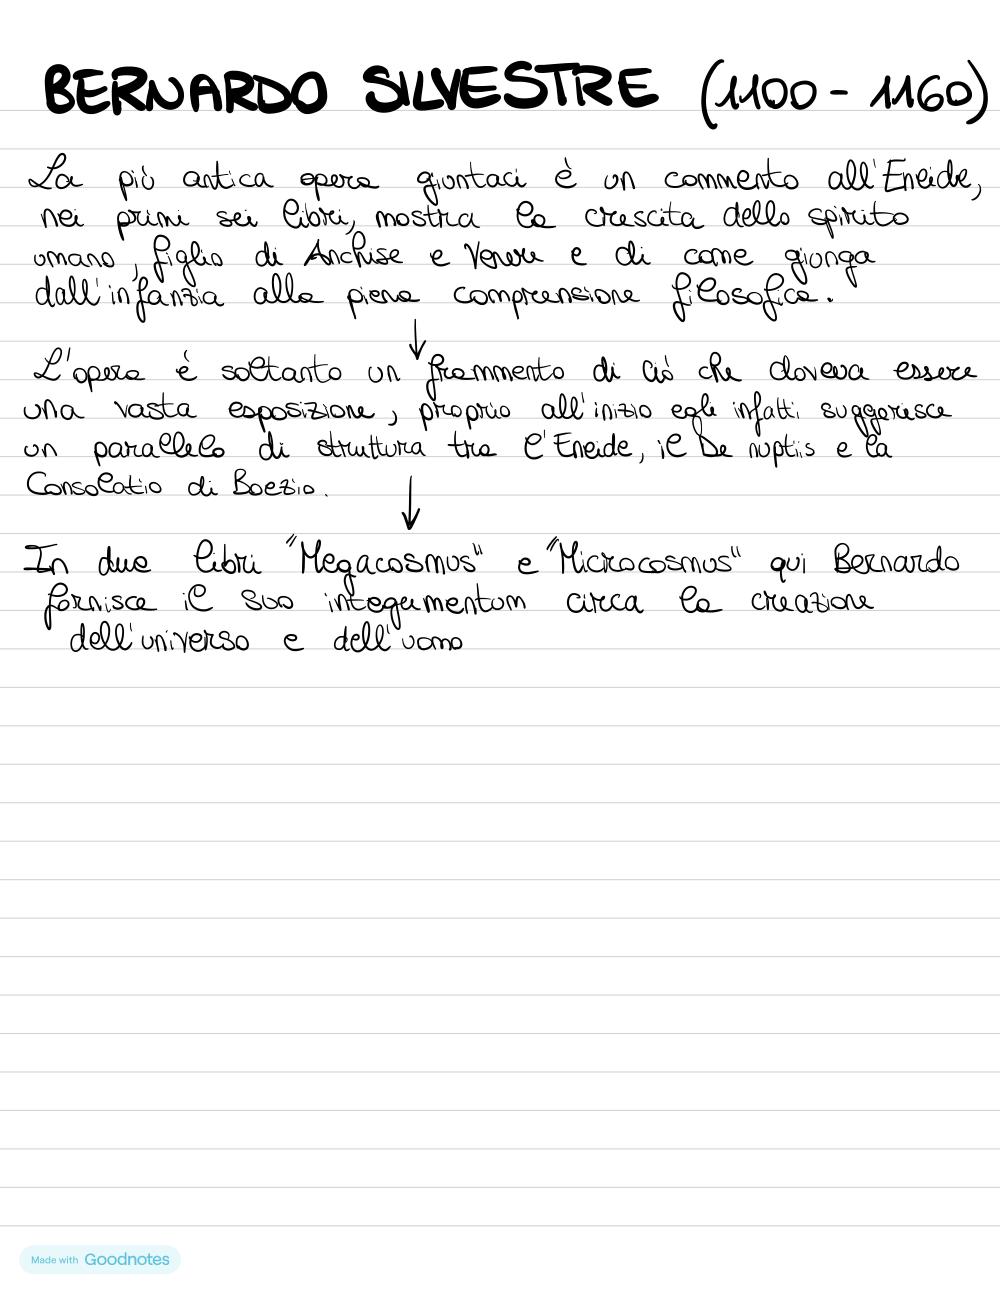 BERNARDO SILVESTRE (1100 - 1160)
La più antica opera giuntaci è un commento all'Eneide,
nei primi sei libri, mostra la crescita dello spirito
umano, figlio di Anchise e Venere e di come giunga
dall'infanzia alla piena comprensione filosofica.
↓
L'opera è soltanto un frammento di ciò che doveva essere
una vasta esposizione, proprio all'inizio egli infatti suggerisce
un parallelo di struttura tra l'Eneide, il De nuptiis e la
Consolatio di Boezio.
↓
In due libri "Megacosmus" e "Microcosmus" qui Bernardo
fornisce il suo integumentum circa la creazione
dell'universo e dell'uomo
Made with Goodnotes